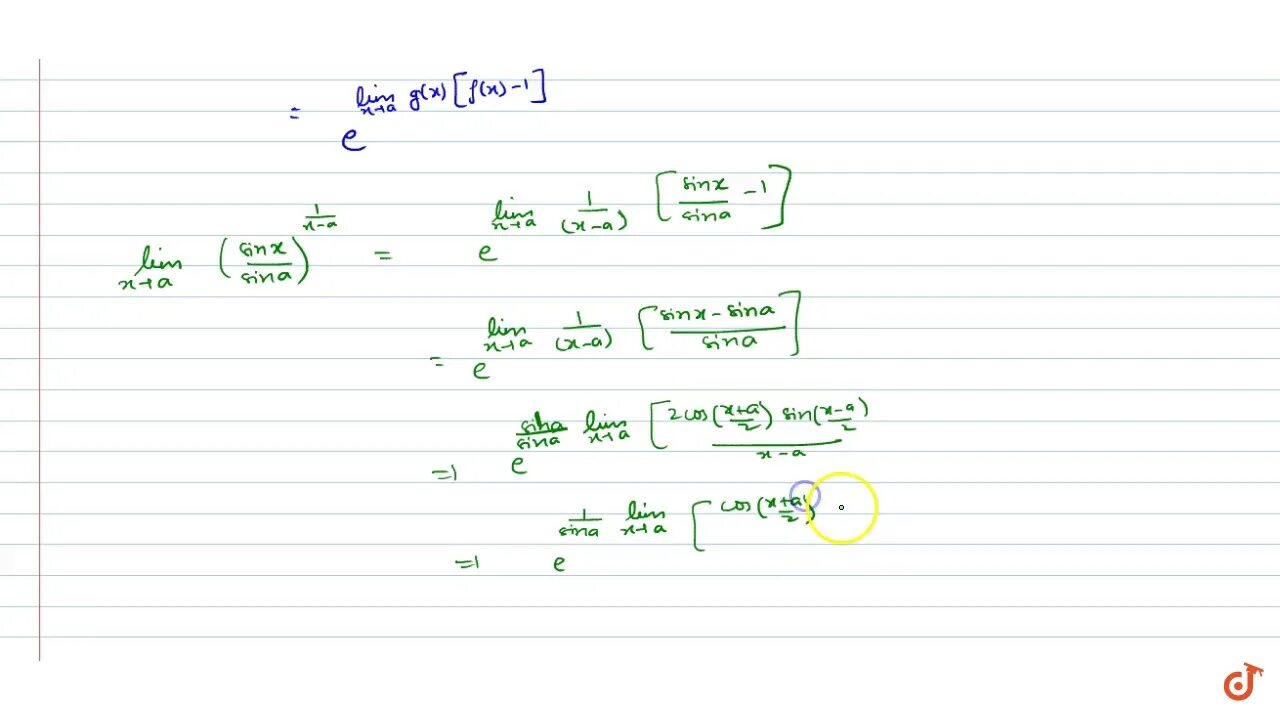 = e^{lim_{x→a} g(x) [f(x) - 1]}
lim_{x→a} (sinx/sina)^{1/(x-a)} = e^{lim_{x→a} 1/(x-a) [sinx/sina - 1]}
= e^{lim_{x→a} 1/(x-a) [(sinx - sina)/sina]}
=1 e^{sina/sina lim_{x→a} [2cos((x+a)/2) sin((x-a)/2)/(x-a)
=1 e^{1/sina lim_{x→a} [cos((x+a)/2)